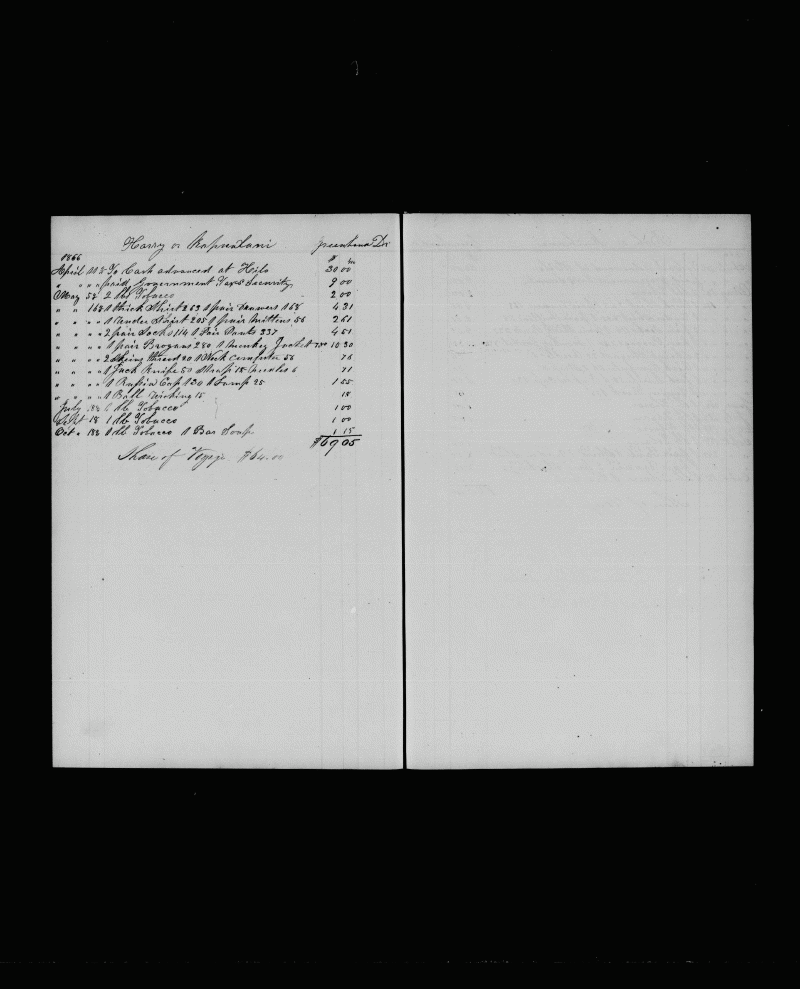 Harry or Kapuulani Greenhand Dr
1866 $ cts
April 11th To Cash advanced at Hilo 30 00
" " " " paid Government Tax & Security 9 00
May 5th 2 lbs Tobacco 2 00
" " 16th 1 thick Shirt 263 1 pair drawers 168 4 31
" " " " 1 Under Shirt 205 1 pair Mittens 56 2 61
" " " " 2 pair Socks 114 1 Pair Pants 337 4 51
" " " " 1 pair Brogans 280 1 Monkey Jacket 750 10 30
" " " " 2 Skeins thread 20 1 Neck Comforter 56 76
" " " " 1 Jack Knife 50 1 Strap 15 Needles 6 71
" " " " 1 Russia Cap 130 1 Lamp 25 1 55
" " " " 1 Ball Wicking 15 15
July 18th 1 lb Tobacco 1 00
Sept 18 1 lb Tobacco 1 00
Oct " 18th 1 lb Tobacco 1 Bar Soap 1 15
$69 05
Share of Voyage $64.00